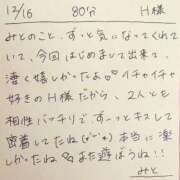 12/16 80分 H様
みとのこと、ずっと気になってくれて
いて、今回はじめましで出来て、
凄く嬉しかったよ♡イチャイチャ
好きのH様だから、2人とも
相性バッチリで、ずーっとキスして
密着してたね(^^) 本当に楽
しかったね♡また遊ぼうね!!
みと